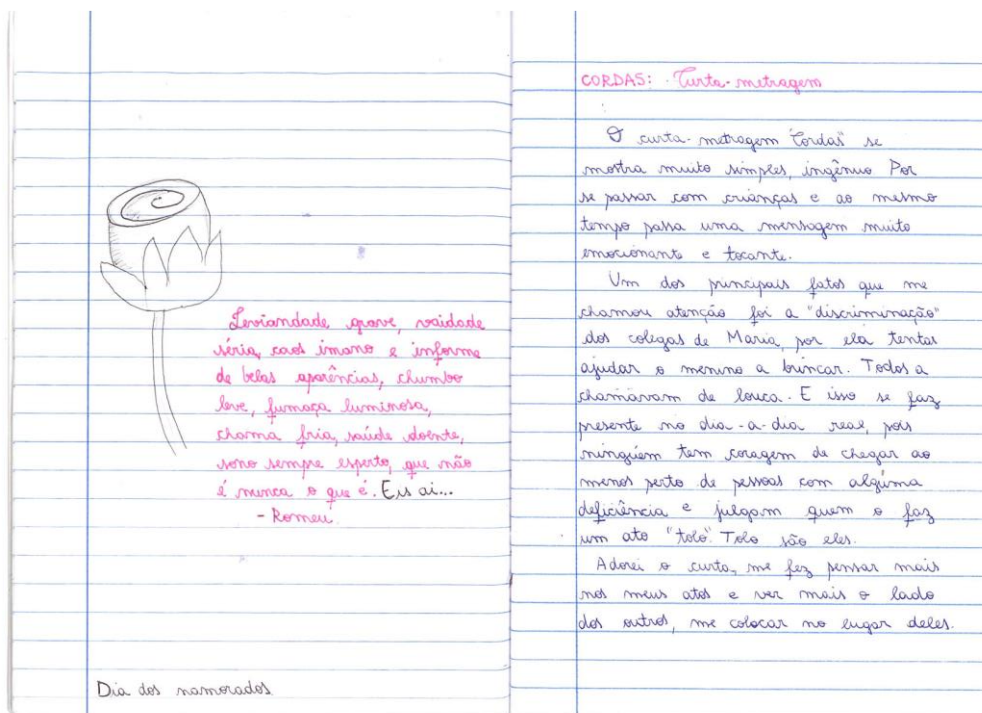 Leviandade, grave, vaidade
séria, caos imano e informe
de belas aparências, chumbo
leve, fumaça luminosa,
chama fria, saúde doente,
sono sempre esperto, que não
é nunca o que é. Eis ai...
- Romeu.
Dia dos namorados
CORDAS: Curta-metragem
O curta-metragem "Cordas" se
mostra muito simples, ingênuo Por
se passar com crianças e ao mesmo
tempo passa uma mensagem muito
emocionante e tocante.
Um dos principais fatos que me
chamou atenção foi a "discriminação"
dos colegas de Maria, por ela tentar
ajudar o menino a brincar. Todos a
chamavam de louca. E isso se faz
presente no dia-a-dia real, pois
ninguém tem coragem de chegar ao
menos perto de pessoas com algúma
deficiência e julgam quem o faz
um ato "tolo". Tolo são eles.
Adorei o curta, me fez pensar mais
nos meus atos e ver mais o lado
dos outros, me colocar no lugar deles.